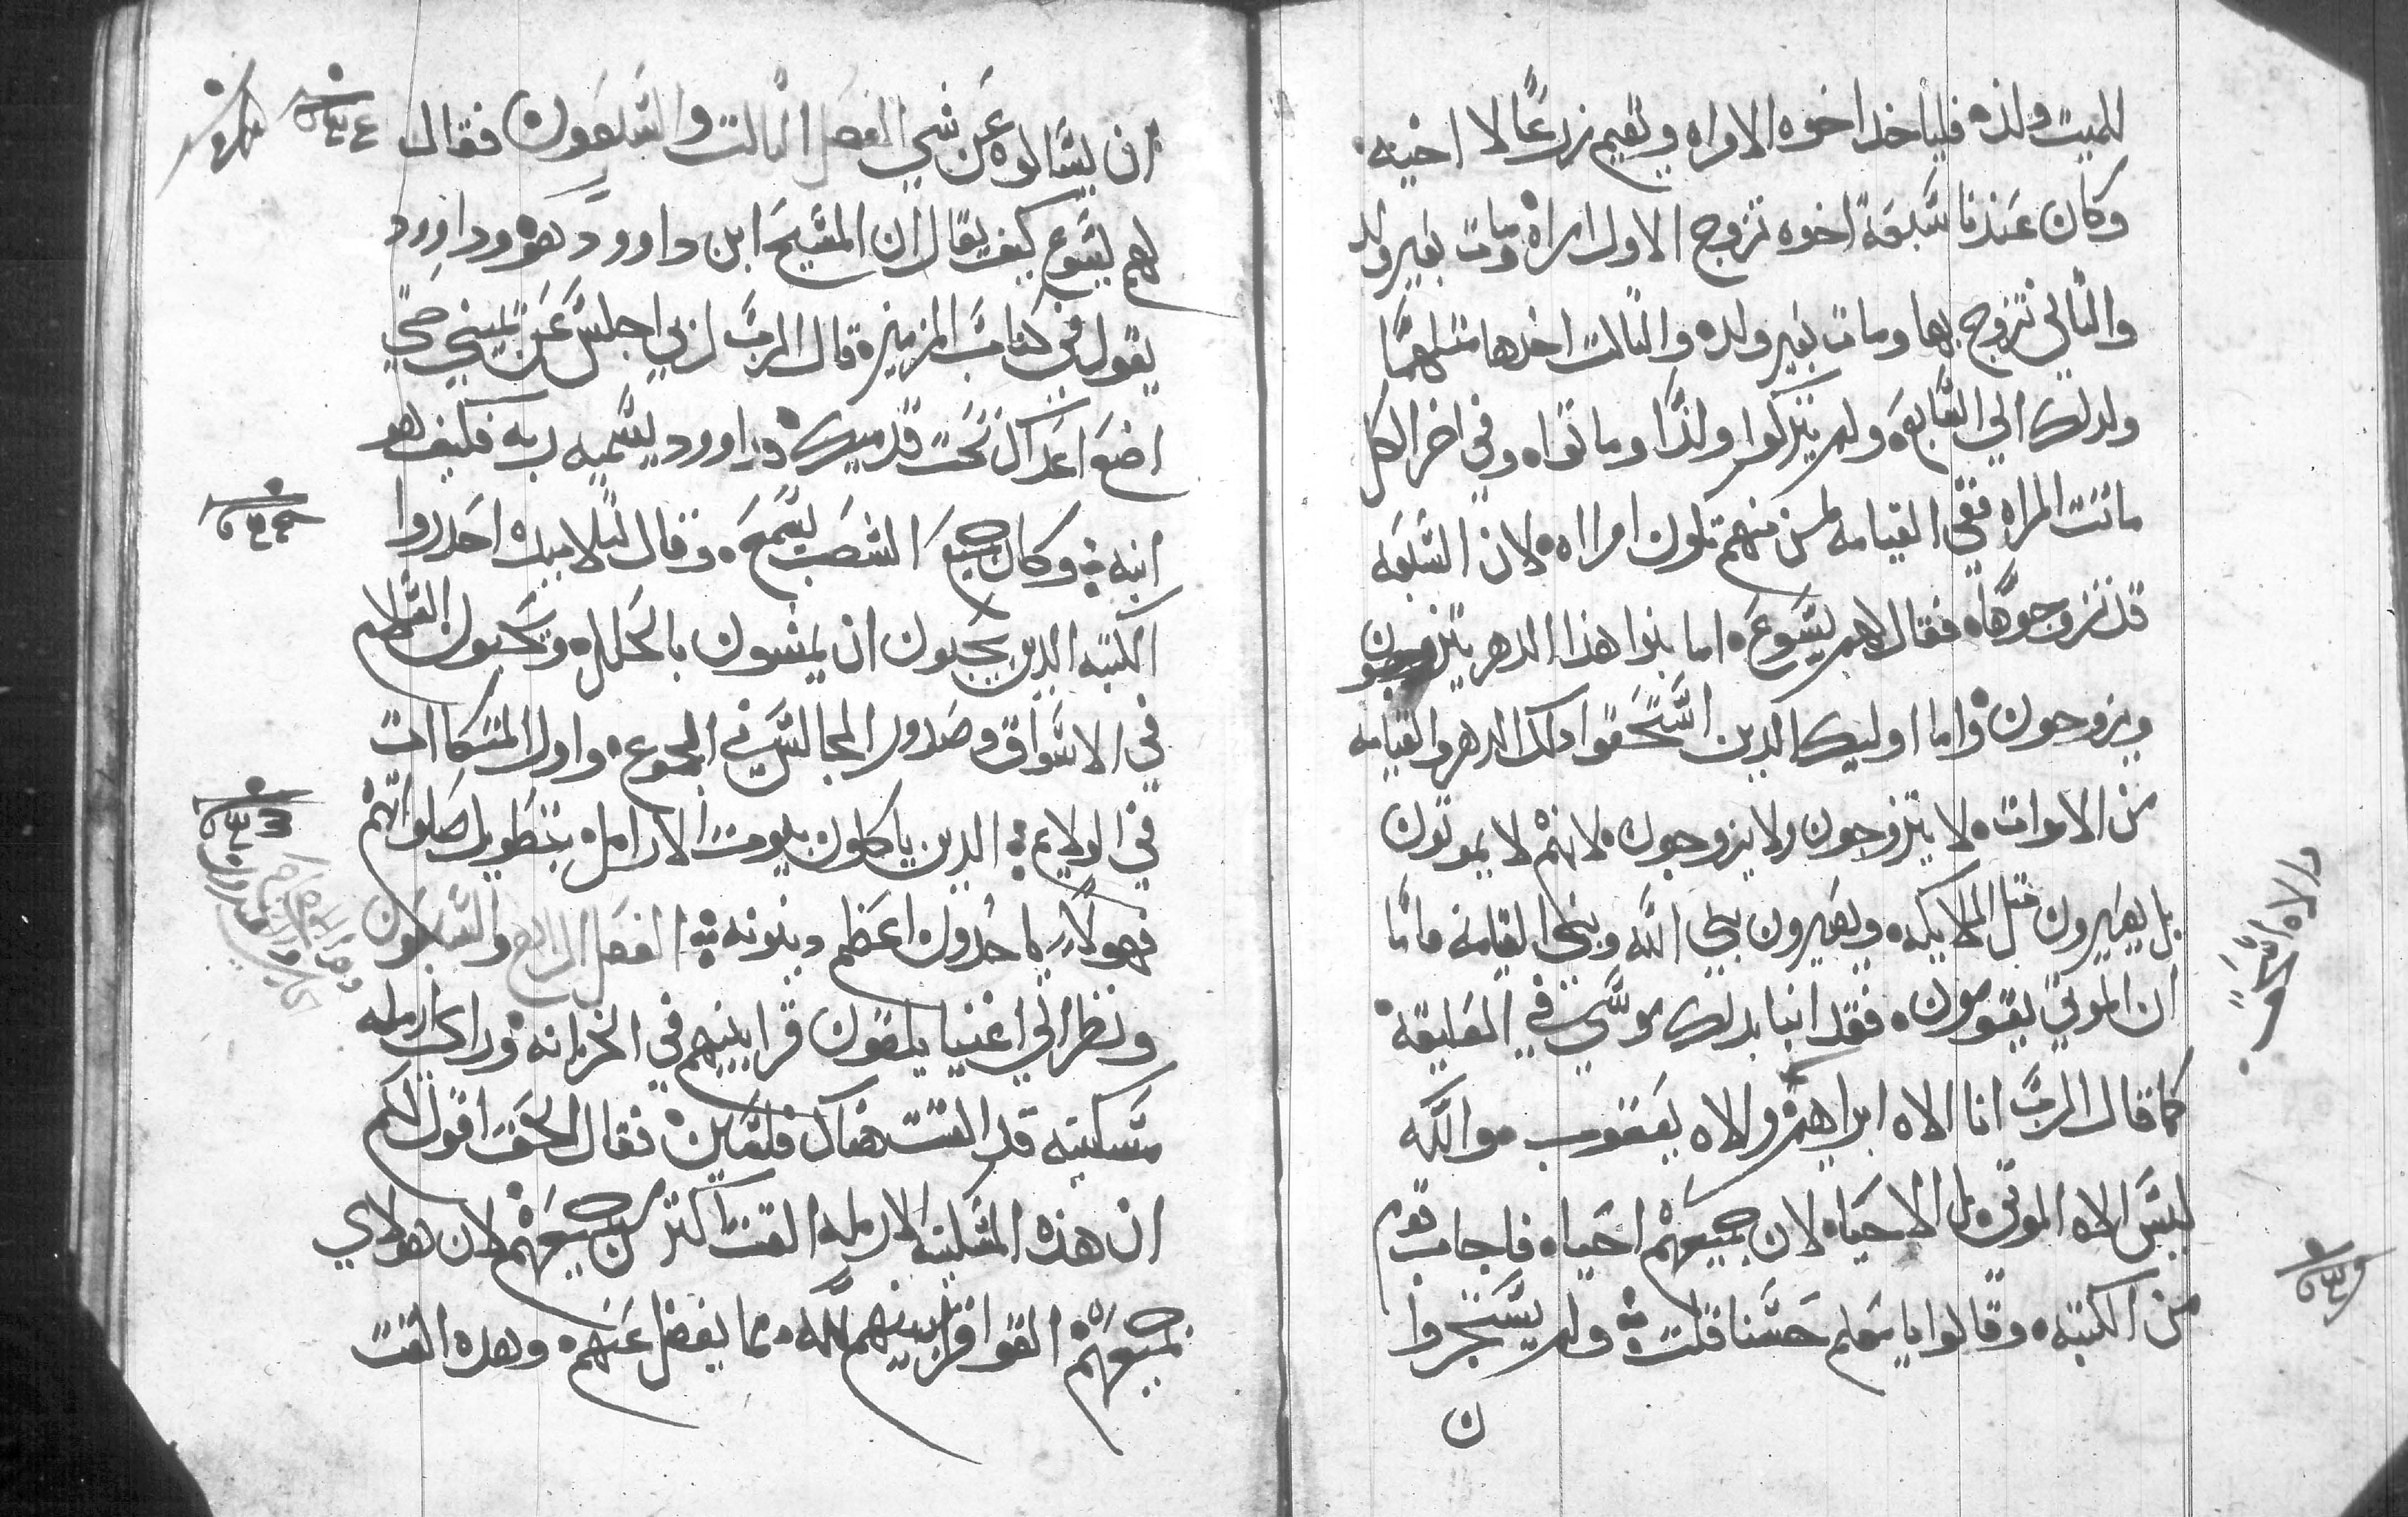 للميت ولده فلياخد اخوه الامراه ويقيم زرعًا لا اخيه
وكان عندنا سبعة اخوه تزوج الاول امراه ومات بغير ولد
والتاني تزوج بها ومات بغير ولده والتالت اخدها متلهما
ولدلك الي السابعه ولم يتركوا ولدًا وماتواه وفي اخر الكل
ماتت المراه ففي القيامه لمن منهم تكون امراه لان السبعه
قد تزوجوها فقال لهم يسوع اما بنوا هذا الدهر يتزوجون
ويزوجون واما اوليك الدين استحقوا دلك الدهر والقيامه
من الاموات لا يتزوجون ولا يزوجون لانهم لا يموتون
بل يصيرون متل الملايكه ويصيرون بني الله وبني القيامه فاما
ان الموتي يقومون فقد انبا بدلك موسي في العليقة
كما قال الرب انا الاه ابراهيم والاه يعقوب والله
ليس الاه الموتي بل الاحياه لان جميعهم احياه فاجاب قوم
من الكتبه وقالوا يا معلم حسنا قلت ولم يستجروا
ن
والاه اسحق
ان يسالوه عن شي الفصل التالت والسبعون فقال
لهم يسوع كيف يقال ان المسيح ابن داوود هو وداوود
يقول في كتاب المزمير قال الرب لربي اجلس عن يميني حتي
اضع اعداك تحت قدميك وداوود يسميه ربه فكيف هو
ابنه وكان جميع الشعب يسمع وقال لتلاميده احدروا
الكتبه الدين يحبون ان يمشون بالحلله ويحبون السلام
في الاسواق وصدور المجالس في الجموع واول المتكاات
في الولايم الدين ياكلون بيوت الارامل بتطويل صلواتهم
فهولاي ياخدون اعظم دينونه الفصل الرابع والسبعون
ونظر الي اغنيا يلقون قرابينهم في الخزانه وراي ارمله
مسكينه قد القت هناك فلسين فقال الحق اقول لكم
ان هذه المسكينه الارمله القت اكتر من جميعهم لان هولاي
جميعهم القوا قرابينهم لله مما يفضل عنهم وهده القت